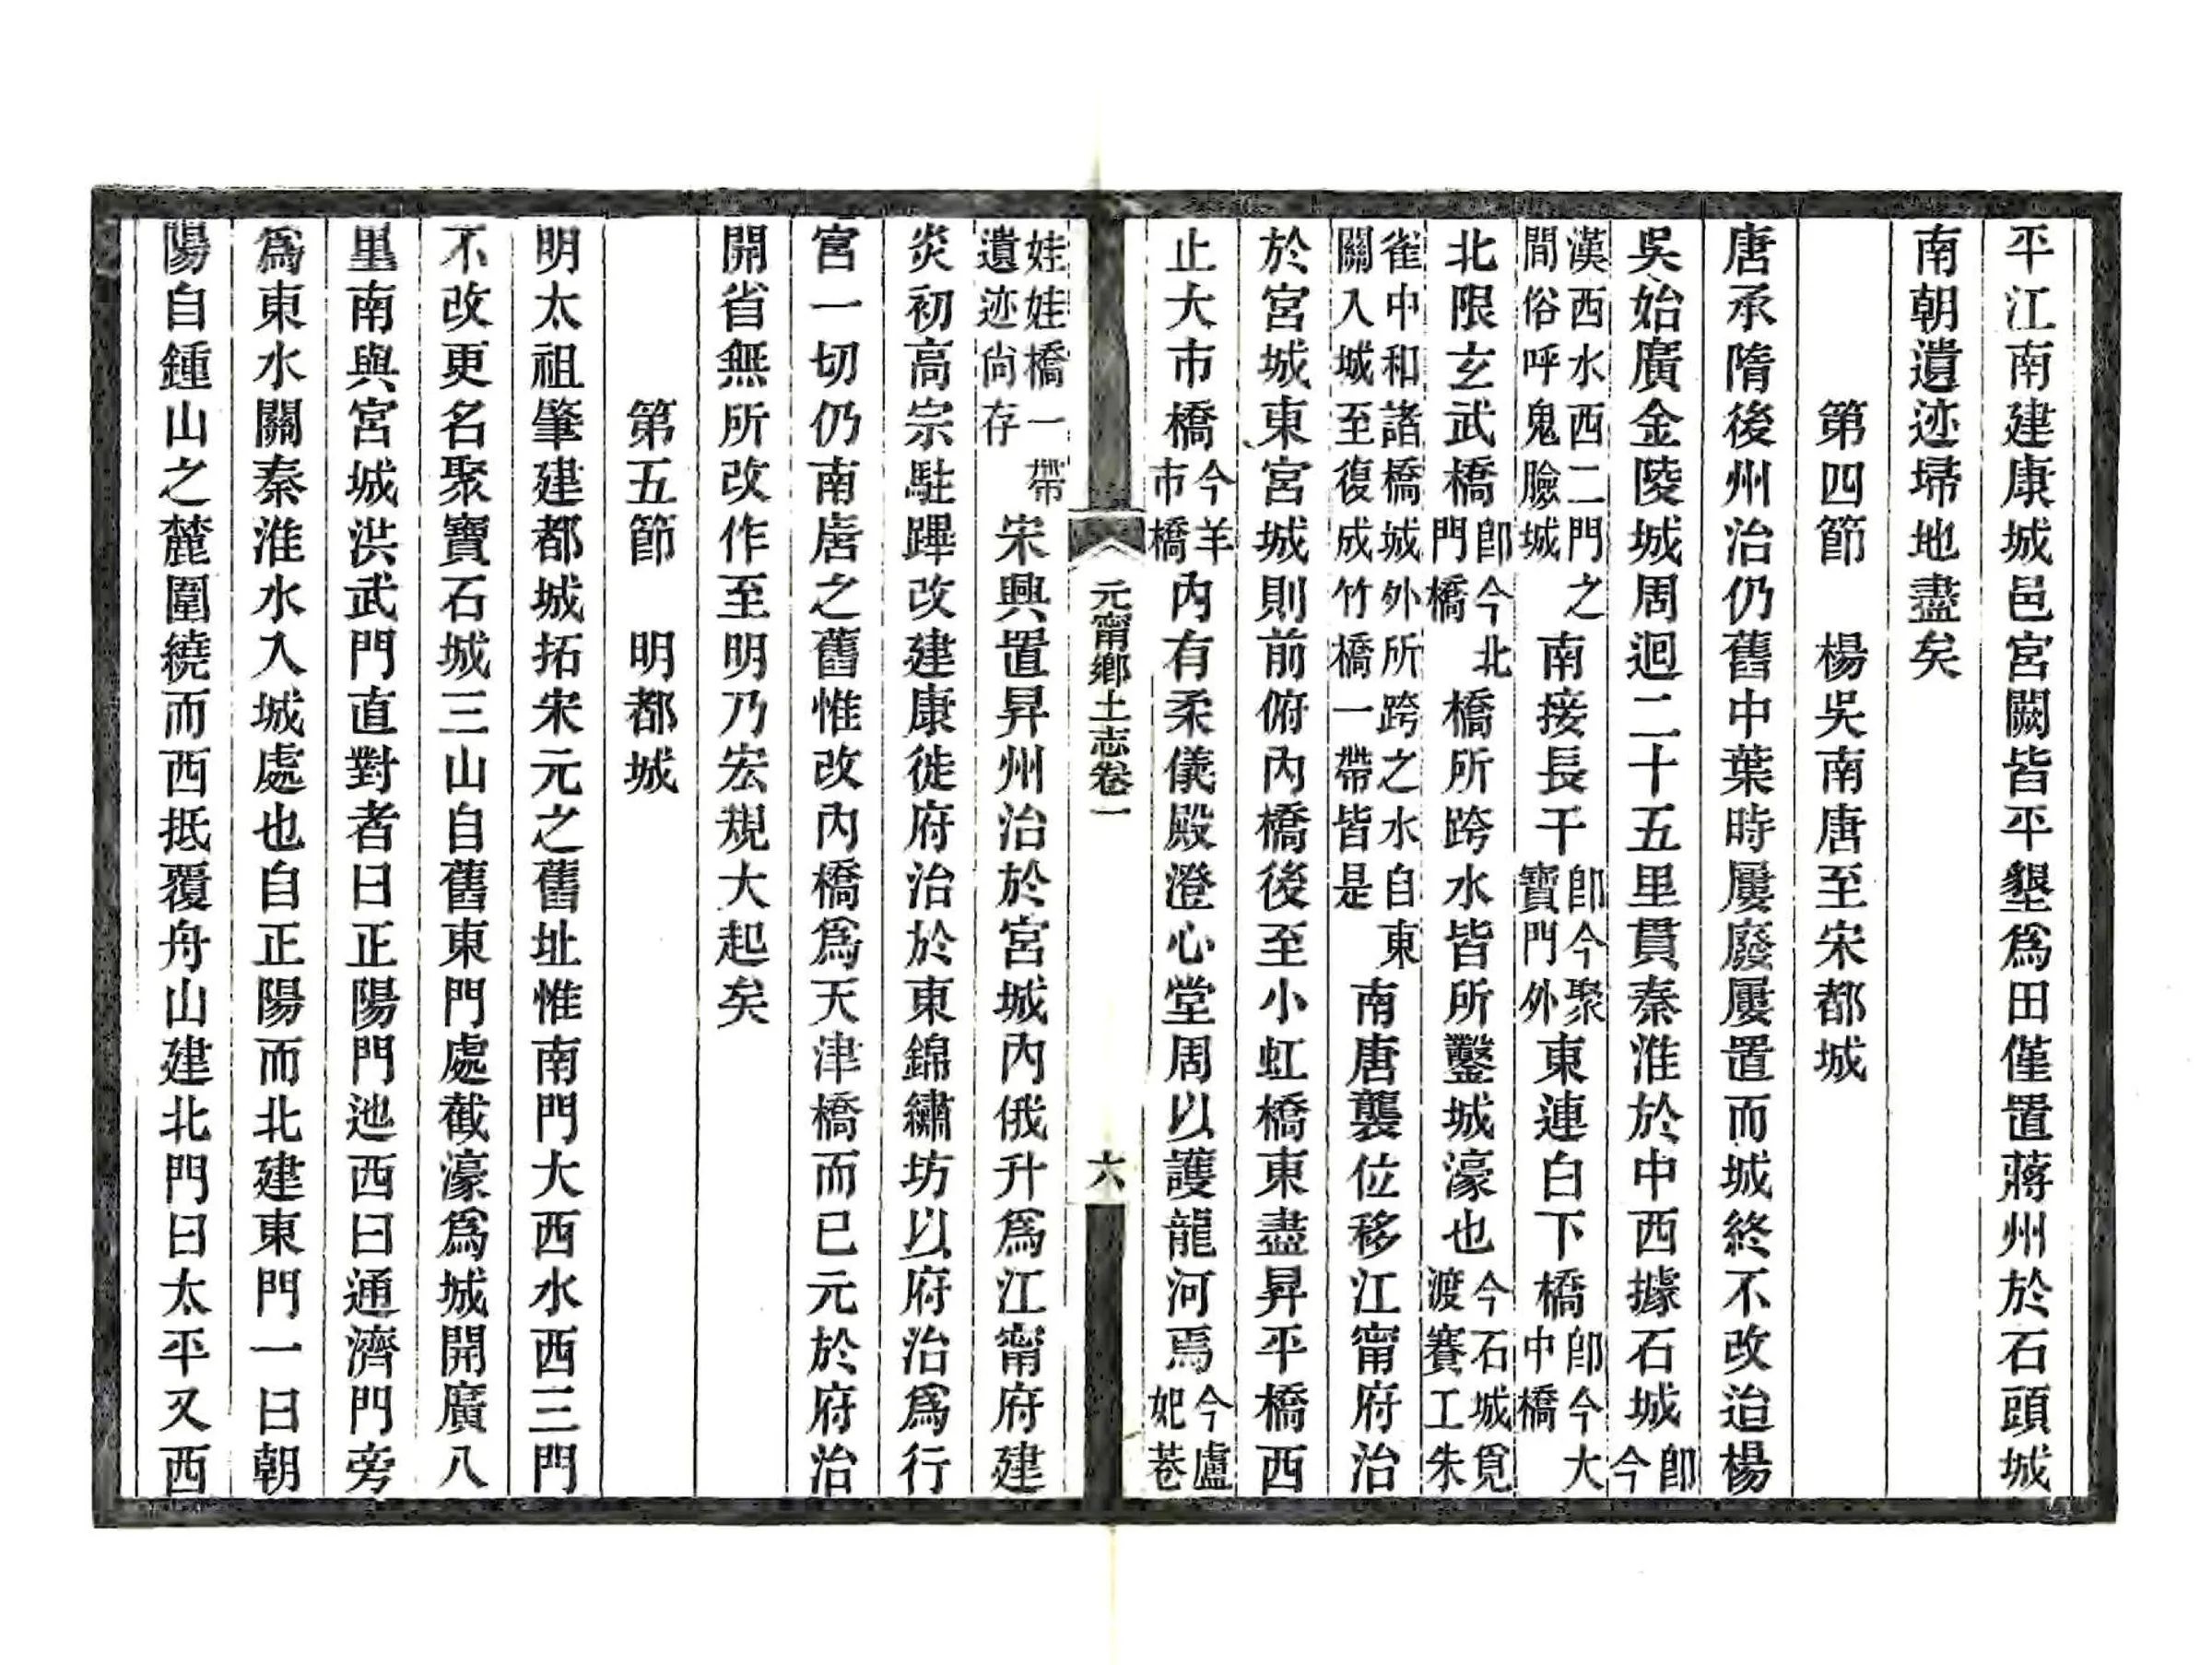 平江南建康城邑宮闕皆平墾爲田僅置蔣州於石頭城
南朝遺迹埽地盡矣
第四節　楊吳南唐至宋都城
唐承隋後州治仍舊中葉時屢廢屢置而城終不改迨楊
吳始廣金陵城周迴二十五里貫秦淮於中西據石城卽今
漢西水西二門之間俗呼鬼臉城南接長干卽今聚寶門外東連白下橋卽今大中橋
北限玄武橋卽今北門橋橋所跨水皆所鑿城濠也今石城覓渡賽工朱
雀中和諸橋城外所跨之水自東關入城至復成竹橋一帶皆是南唐襲位移江甯府治
於宮城東宮城則前俯內橋後至小虹橋東盡昇平橋西
止大市橋今羊市橋內有柔儀殿澄心堂周以護龍河焉今盧妃巷
元甯鄉土志卷一　六
娃娃橋一帶遺迹尙存宋興置昇州治於宮城內俄升爲江甯府建
炎初高宗駐蹕改建康徙府治於東錦繡坊以府治爲行
宮一切仍南唐之舊惟改內橋爲天津橋而已元於府治
開省無所改作至明乃宏規大起矣
第五節　明都城
明太祖肇建都城拓宋元之舊址惟南門大西水西三門
不改更名聚寶石城三山自舊東門處截濠爲城開廣八
里南與宮城洪武門直對者曰正陽門迆西曰通濟門旁
爲東水關秦淮水入城處也自正陽而北建東門一曰朝
陽自鍾山之麓圍繞而西抵覆舟山建北門曰太平又西